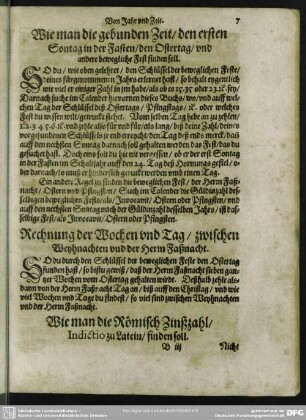 Von Jahr vnd Zeit. 7
Wie man die gebunden Zeit / den ersten
Sontag in der Fasten / den Ostertag / vnd
andere bewegliche Fest finden soll.
SO du / wie oben gelehret / den Schlüssel der beweglichen Feste /
deines fürgenommenen Jahrs erlernet hast / so behalt eygentlich
wie viel er einiger Zahl in jm habe / als ob es 15. 35 oder 23. sey /
Darnach suche im Calender hievornen dieses Buchs / wo / vnd auff wel-
chen Tag der Schlüssel deß Ostertags / Pfingstags / oder welches
Fest du wissen wilt / geruckt stehet. Vom selben Tag hebe an zu zehlen /
biß deine Zahl / dem
auff den nechsten Sontag darnach soll gehalten werden das Fest / das du
gesuchet hast. Doch eins solt du hie mit vermessen / ob er der erst Sontag
in der Fasten im Schaltjahr auff den 24. Tag deß Hornungs gefiel / o-
der darnach / so muß er hindersich geruckt werden vmb einen Tag.
Ein andere Regel zu finden die beweglichen Fest / der Herrn Faß-
nacht / Ostern vnd Pfingsten / Such im Calender die Güldinzahl deß-
selbigen beweglichen Fests / als / Invocavit / Ostern oder Pfingsten / vnd
auff den nechsten Sontag nach der Güldinzahl desselben Jahrs / ist das-
selbige Fest / als Invocavit / Ostern oder Pfingsten.
Rechnung der Wochen vnd Tag / zwischen
Weyhnachten vnd der Herrn Faßnacht.
SO du durch den Schlüssel der beweglichen Feste den Ostertag
funden hast / so biß gewiß / daß der Herrn Faßnacht sieben gan-
tzer Wochen vorm Ostertag gehalten wirdt. Deßhalb zehle als-
dann von der Herrn Faßnacht Tag an / biß auff den Christag / vnd wie
viel Wochen vnd Tage du findest / so viel sind zwischen Weyhnachten
vnd der Herrn Faßnacht.
Wie man die Römisch Zinßzahl /
Indictio zu Latein / finden soll.
B iij Nicht